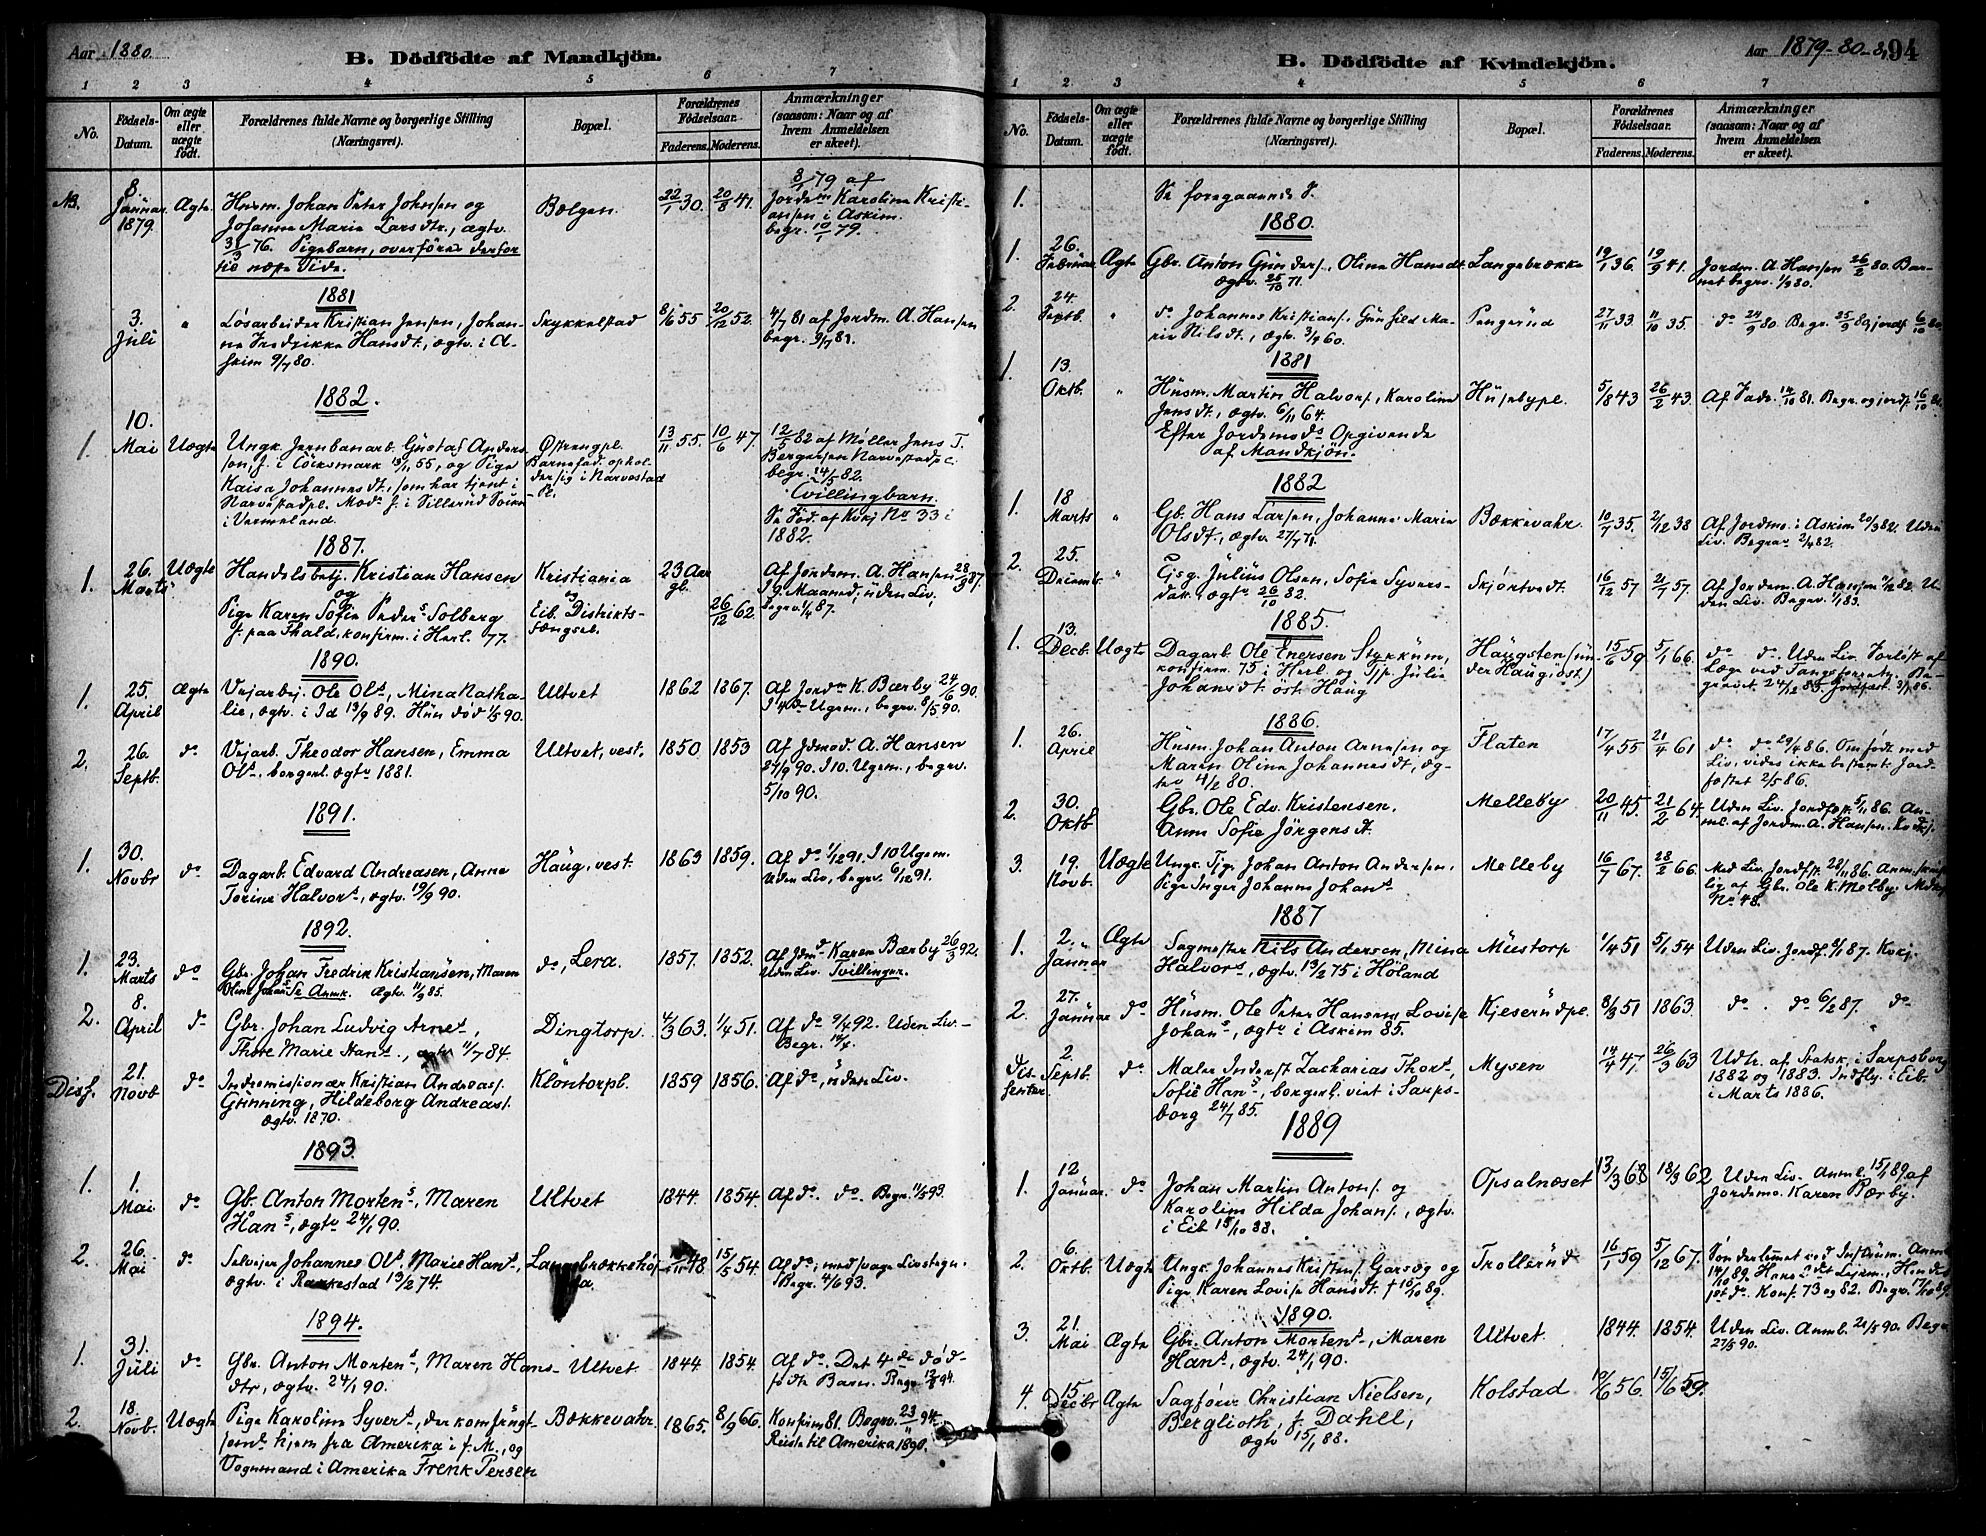 Aar 1880.
B. Dödfödte af Mandkjön.
1 2 3 4 5 6 7
No.
Födsels-Datum.
Om ægte eller uægte födt.
Forældrenes fulde Navne og borgerlige Stilling (Næringsvei).
Bopæl.
Forældrenes Födselsaar.
Faderens.
Moderens.
Anmærkninger (saasom: Naar og af hvem Anmeldelsen er skeet).
NB. 8. Januar 1879. Ægte. Husm. Johan Peter Johnsen og
Johanne Marie Larsdtr., ægtv.
31/3 76. Pigebarn, overföres derfor
til næste Side.
Bælgen. 22/1 30. 20/8 41.
8/1 79 af
Jordem Karoline Kristi-
ansen i Askim.
begr. 10/1 79.
1881
3. Juli " Løsarbeider Kristian Jensen, Johan-
ne Fredrikke Hansdt., ægtv. i A-
skim 9/7 80.
Skykkelstad 8/6 55 20/12 52.
4/7 81 af Jordm. A. Hansen
begr. 9/7 81.
1882.
1. 10. Mai Uægte Ungk. Jernbanarb. Gustaf Anders-
son, f. i Cöiksmark 13/11 55, og Pige
Kaisa Johannesdt., som har tjent i
Narvestadpl. Mod. f. i Sillerud Sogn
i Vermeland.
Østrengpl.
Barnefad. ophol-
der sig i Narvestad
pl.
13/11 55. 10/6 47.
12/5 82 af Møller Jens T.
Bergersen Narvestadpl.
begr. 14/5 82.
Tvillingbarn.
Se Föd. af Kvkj No 33 i
1882.
1887.
1. 26. Marts Uægte Handelsbetj. Kristian Hansen
og
Pige Karen Sofie Peders. Solberg
f. paa Thald, konfirm. i Herl. 77.
Kristiania
og
Eib. Distrikts-
fængsel.
23 Aar gl. 26/12 62.
Af Jordem. A. Hansen 28/3 87.
I 9. Maaned, uden Liv,
Begrv. 1/4 87.
1890.
1. 25. April Ægte Veiarbej. Ole Ols., Mina Natha-
lie, ægtv. i Id 13/9 89. Hun död 1/5 90.
Ultvet 1862 1867.
Af Jordm K. Bærby 24/6 90.
begrv. 8/5 90.
2. 26. Septb. do Veiarb. Theodor Hansen, Emma
Ols., borgerl. ægtv 1881.
Ultvet, vest. 1850 1853
Af Jdmod. A. Hansen
27/9 90. I 10. Ugem., begrv.
5/10 90.
1891.
1. 30. Novbr do Dagarb. Edvard Andreasen, Anne
Torine Halvors., ægtv. 19/9 90.
Haug, vest. 1863 1859.
Af do 1/12 91. I 10 Ugem.
Uden Liv, begrv. 6/12 91.
1892.
1. 23. Marts do Gbr. Johan Fredrik Kristiansen, Maren
Oline Johans. Se Anmk. Ægtv. 11/9 85.
do, Lera. 1857. 1852.
Af Jdmd. Karen Bærby 26/3 92.
Uden Liv. Tvillinger.
2. 8. April do Gbr. Johan Ludvig Arnes.,
Thore Marie Hans., ægtv 11/7 84.
Dingtorp. 4/3 63. 1/4 51.
Af do 9/4 92. Uden Liv.
Begr. 14/4.
Diss. 21. Novb do Indremissionær Kristian Andreas.
Grünning, Hildeborg Andreas.
ægtv. 1870.
Klöntorpb. 1859 1856.
Af do, uden Liv.
1893.
1. 1. Mai do Gbr. Anton Mortens., Maren
Hans., ægtv 24/1 90.
Ultvet 1844. 1854.
Af do. do. Begr. 11/5 93.
2. 26. Mai do Selveier Johannes Ols. Marie Hans.,
ægtv. i Rakkestad 13/2 74.
Langbrækkehög-
da. 48 15/5 54.
Af do; med svage Livstegn.
Begr. 4/6 93.
1894.
1. 31. Juli do Gbr. Anton Mortens., Maren Hans-
dtr, ægtv. 24/1 90.
Ultvet 1844 1854.
Af do. Det 4de död-
fødte Barn. Begr. 12/8 94.
2. 18. Novb. Uægte Pige Karoline Syvers., der kom frugt-
somm. hjem fra Amerika i f. M., og
Vognmand i Amerika Frenk Persen
Bækkevahr. 1865. 8/9 66.
Konfirm 81. Begrv. 23/11 94.
Reiste til Amerika 1890.
Aar 1879-80-8 94
B. Dödfödte af Kvindekjön.
1 2 3 4 5 6 7
No.
Födsels-Datum.
Om ægte eller uægte födt.
Forældrenes fulde Navne og borgerlige Stilling (Næringsvei).
Bopæl.
Forældrenes Födselsaar.
Faderens.
Moderens.
Anmærkninger (saasom: Naar og af hvem Anmeldelsen er skeet).
1. Se foregaaende S.
1880.
1. 26. Februar Ægte Gbr. Anton Gunders., Oline Hansdt.
ægtv. 25/10 71.
Langebrække 19/1 36. 19/9 41.
Jordm. A. Hansen 26/2 80. Bar-
net begrv. 1/3 80.
2. 24. Septb. " do Johannes Kristians., Gunhild Ma-
rie Nilsdt., ægtv. 3/4 60.
Pengerud 27/11 33. 11/10 35.
do 24/9 80. Begr. 25/9 80, jordf. 6/10 80.
1881
1. 13. Oktb. " Husm. Martin Halvors., Karoline
Jensdt., ægtv. 6/11 64.
Efter Jordemods Opgivende
af Mandkjön.
Husebypl. 5/8 43 26/2 43.
Af Fade. 14/10 81. Begr. og jordf. 16/10 81.
1882
1. 18 Marts " Gb. Hans Larsen, Johanne Marie
Olsdt., ægtv. 27/7 71.
Bækkevahr. 10/7 35. 2/12 38
Af Jordmo. i Askim 20/3 82. Uden
Liv. Begrav 2/4 82.
2. 25. Decemb. " Gsg. Julius Olsen, Sofie Syvers-
datt., ægtv 26/10 82.
Skjörtvedt. 16/12 57 2/7 57.
Af Jordem. A. Hansen 82. U-
den Liv. Begrv. 1/1 83.
1885.
1. 13. Decb. Uægte Dagarb. Ole Enersen Stykkum,
konfirm. 75 i Herl. og Tjp. Julie
Johansdt. öst. Haug
Haugsten (un-
der Haug öst.) 15/6 59. 5/1 66.
do do. Uden Liv. Forlöst af
Læge ved Tangforretn. Be-
gravet. 24/12 85. Jordfæst. 3/1 86.
1886.
1. 26. April Husm. Johan Anton Arnesen og
Maren Oline Johannesdt., æg-
tev 4/2 80.
Flaten 17/4 55 21/4 61
do do 29/4 86. Om födt med
Liv, vides ikke bestemt. Jord-
fæstet 2/5 86.
2. 30. Oktb Gbr. Ole Edv. Kristensen,
Anne Sofie Jörgensdt.
Melleby 20/11 45. 21/2 64.
Uden Liv. Jordfæst. 5/11 86. An-
ml. af Jordm. A. Hansen. Kvdkj.
3. 19. Novb. Uægte Ungk. Tjg. Johan Anton Andersen,
Pige Inger Johanne Johans.
Melleby 16/7 67. 28/2 66.
Med Liv. Jordfst. 28/11 86. Anm. skrift-
lig af Gbr. Ole K. Melby. Mdkj
No 48.
1887
1. 2. Januar Ægte Sagmester Nils Andersen, Mina
Halvors., ægtv. 19/2 75 i Höland
Mustorp 1/4 51 5/1 54
Uden Liv. Jordf. 9/1 87. Kvkj.
2. 27. Januar do Husm. Ole Peter Hansen, Lovise
Johans., ægtv i Askim 85.
Kjeserudpl. 8/3 51 1863.
do. do 6/2 87. do
Dis-
senter. 2. Septb. do Maler Inderst Zacharias Thors.,
Sofie Hans., borgerl. viet i Sarps-
borg 24/7 85.
Mysen 14/4 47. 26/3 63
Udtr. af Statsk. i Sarpsborg
1882 og 1883. Indfly. i Eib.
i Marts 1886.
1889
1. 12 Januar. do Johan Martin Antons. og
Karoline Hilda Johans., ægtv.
i Eib 15/10 88.
Opsalnæset 13/3 68 18/3 62
Uden Liv. Anml. 15/1 89 af
Jordemo. Karen Bærby.
2. 6. Oktb. Uægte Ungk. Johannes Kristens. Garseg og
Pige Karen Lovise Hansdt. † 10/10 89.
Trollerud 16/1 59 5/12 67.
Sönderlemmet ved Instrum. Anml
14/10 89. Hans 2det Leierm., Hendes
1st do. Konf. 73 og 82. Begr. 17/10 89.
1890.
3. 21. Mai Ægte Gbr. Anton Mortens., Maren
Hans., ægtv. 24/1 90.
Ultvet. 1844. 1854.
Uden Liv. Anml. 21/5 90. Begr
27/5 90.
4. 15 Decbr Ægte Sagförer Christian Nielsen,
Berglioth, f. Dahll,
ægtv 15/1 88.
Kolstad 10/6 56. 15/6 59.